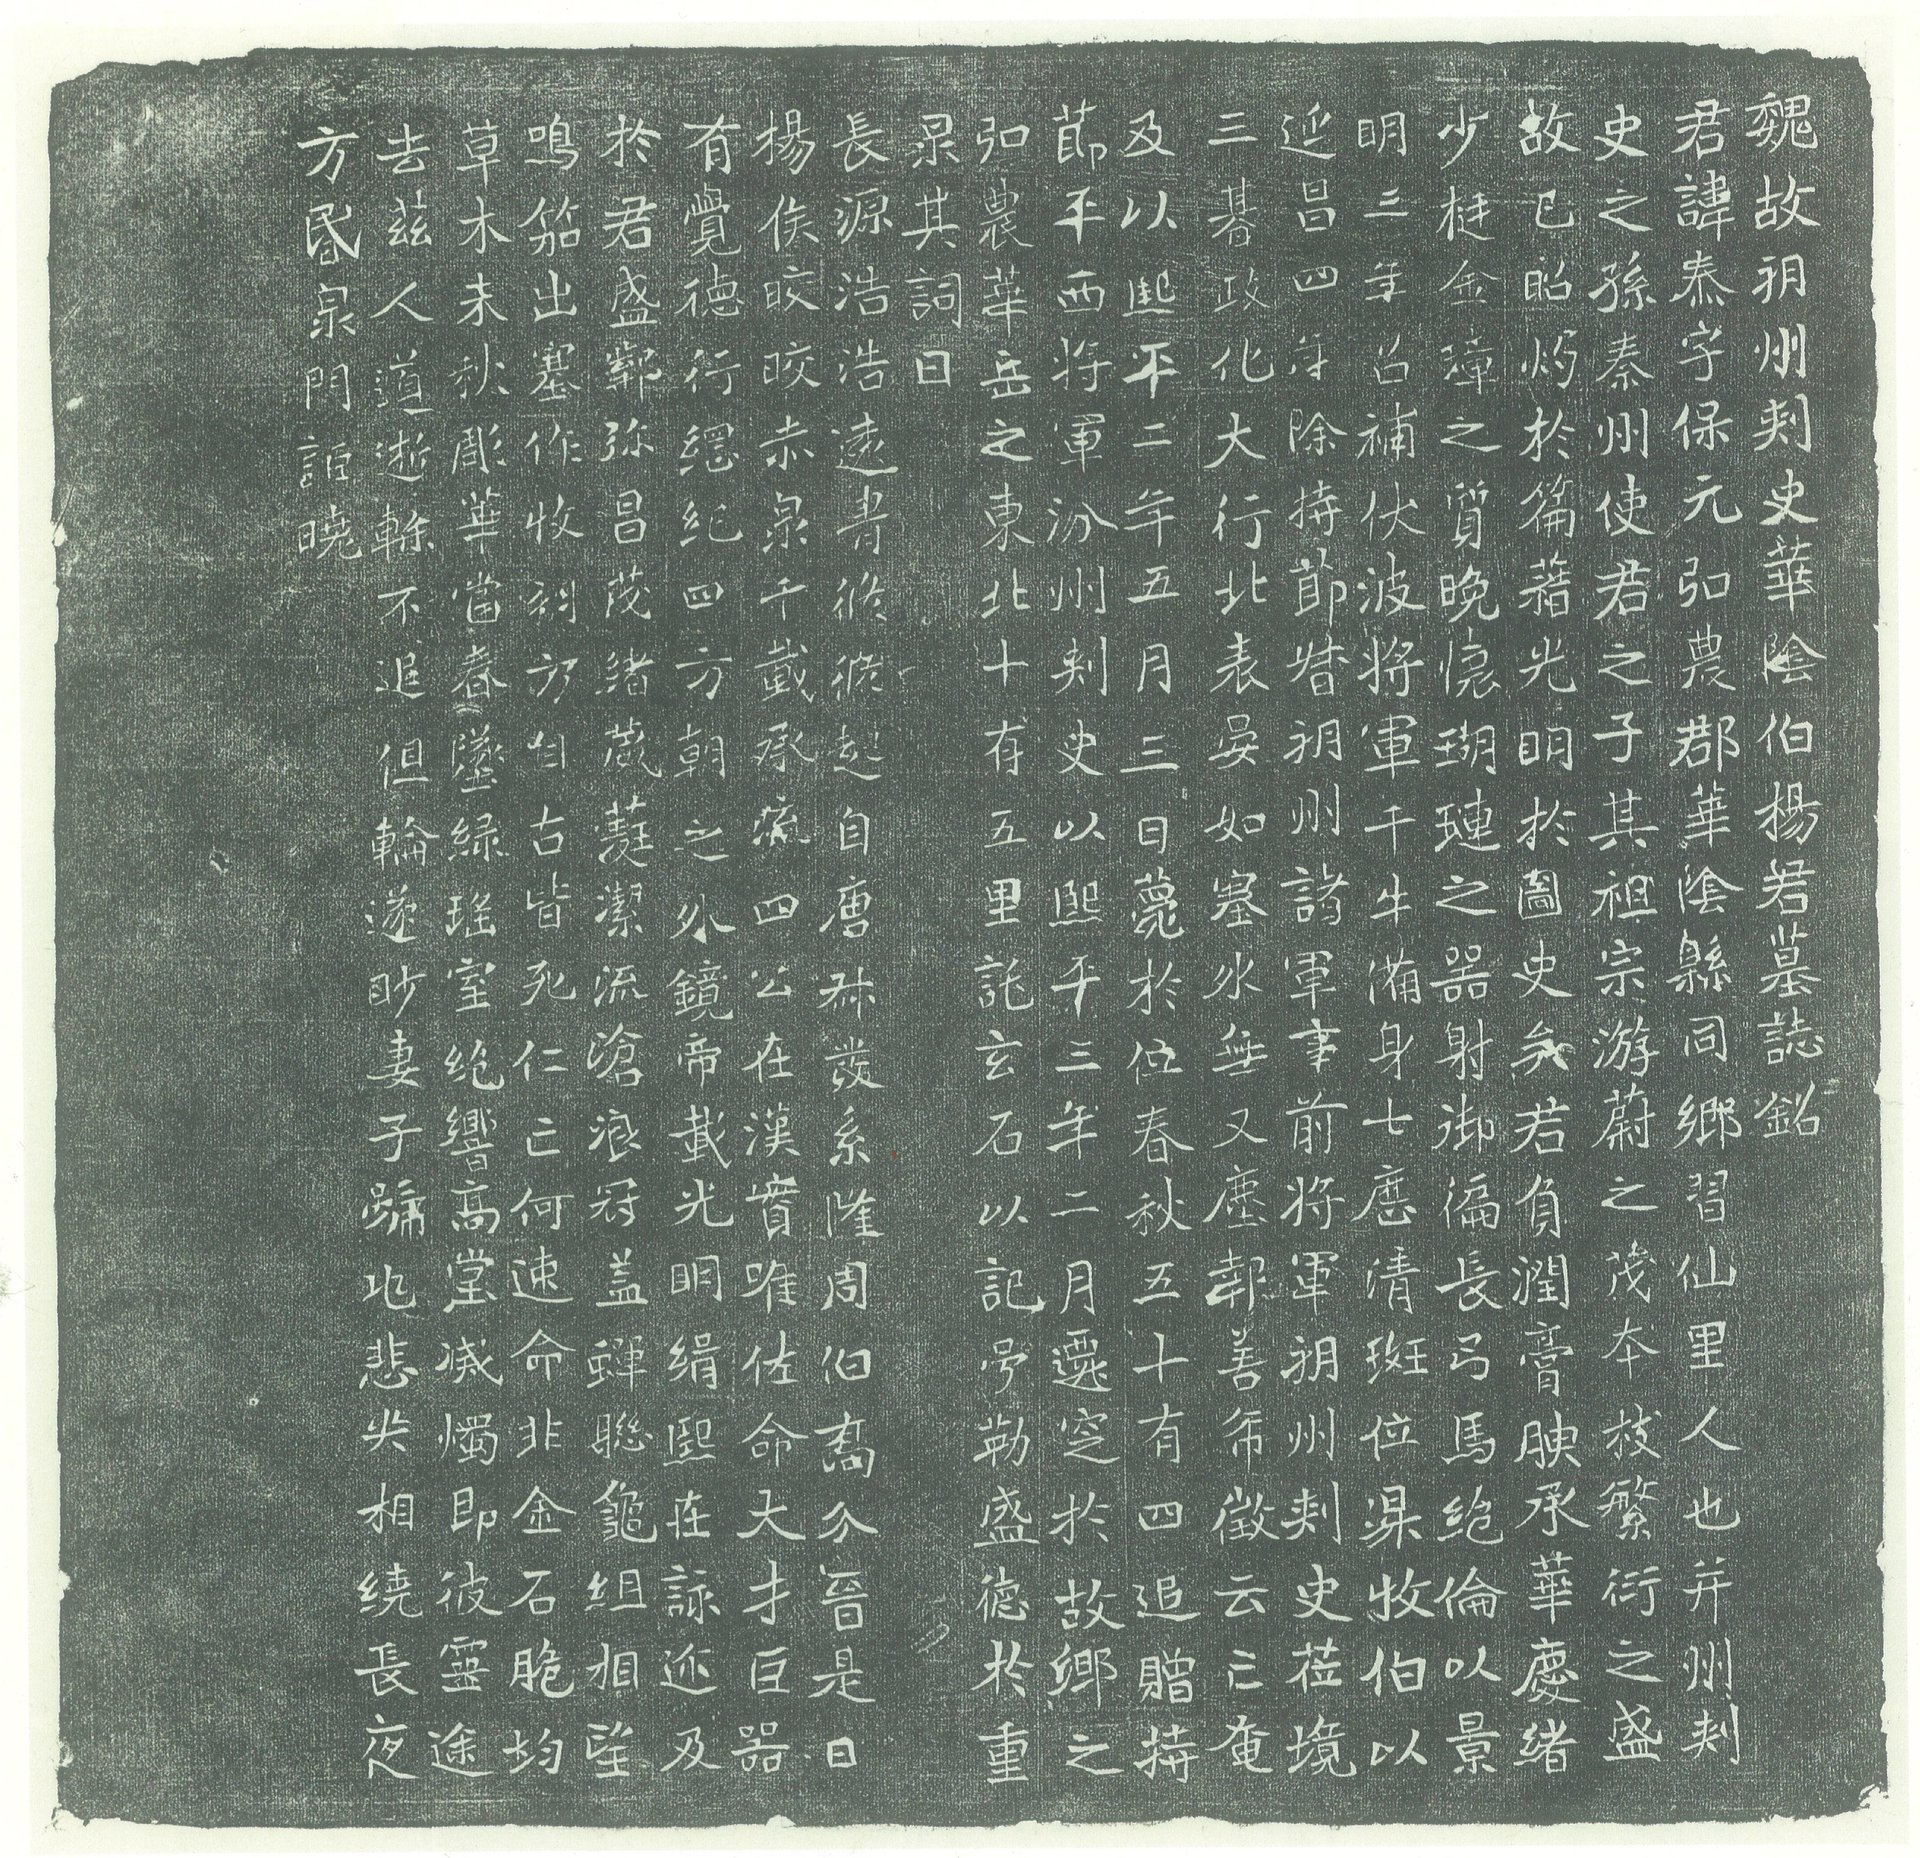 魏故朔州刺史華陰伯楊君墓誌銘
君諱泰字保元弘農郡華陰縣同鄉習仙里人也并州刺
史之孫秦州使君之子其祖宗游蔚之茂本枝繁衍之盛
故已昭灼於篇藉光明於圖史矣君負潤膏腴承華慶緒
少挺金璋之質晚懷瑚璉之器射御徧長弓馬絶倫以景
明三年召補伏波將軍千牛備身七應清斑位渠牧伯以
延昌四年除持節督朔州諸軍事前將軍朔州刺史莅境
三朞政化大行北表晏如塞水無又塵報善希徵云亡奄
及以熙平二年五月三日薨於位春秋五十有四追贈持
節平西將軍汾州刺史以熙平三年二月遷窆於故鄉之
弘農華岳之東北十有五里託玄石以記号勒盛德於重
泉其詞曰
長源浩浩遠胄脩脩起自唐叔發系隆周伯喬分晉是曰
楊侯皎皎赤泉千載承流四公在漢實唯佐命天才巨器
有覺德行綱紀四方朝之水鏡帝載光明緝熙在詠迩及
於君盛鄣弥昌茂緒葳蕤潔流滄浪冠蓋蟬聯龜組相望
鳴笳出塞作牧朔方自古皆死仁亡何速命非金石脆均
草木未秋彫華當春墜緑瑤室絶響高堂滅燭即彼靈途
去茲人道逝軨不追但輪遂眇妻子踊叫悲哭相繞長夜
方昏泉門詎曉